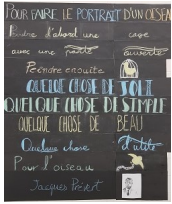 POUR FAIRE LE PORTRAIT D'UN OISEAU
Peindre d'abord une cage
avec une porte ouverte
Peindre ensuite
QUELQUE CHOSE DE JOLI
QUELQUE CHOSE DE SIMPLE
QUELQUE CHOSE DE BEAU
Quelque chose d'utile
Pour l'oiseau
Jacques Prévert